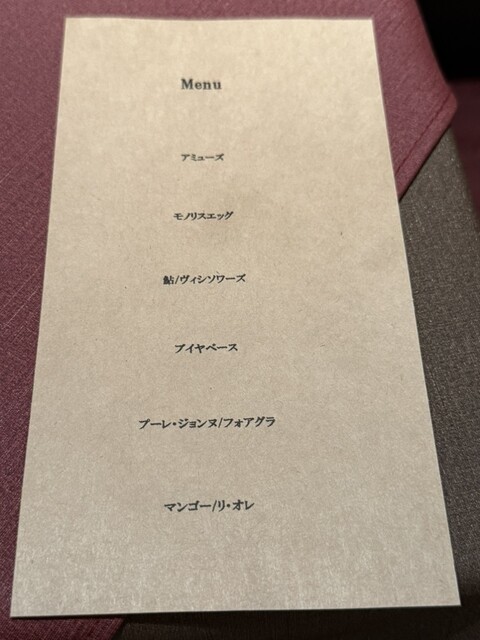 Menu
アミューズ
モノリスエッグ
鮎/ヴィシソワーズ
ブイヤベース
プーレ・ジョンヌ/フォアグラ
マンゴー/リ・オレ